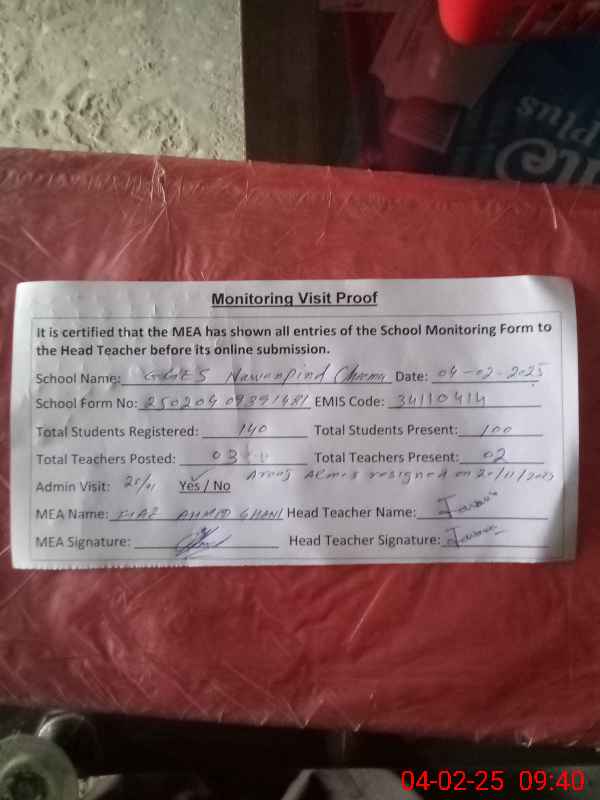 plus
Monitoring Visit Proof
It is certified that the MEA has shown all entries of the School Monitoring Form to
the Head Teacher before its online submission.
School Name: GGES Nawanpind Cheema Date: 04-02-2025
School Form No: EMIS Code: 34110414
Total Students Registered: 140 Total Students Present: 100
Total Teachers Posted: 03 Total Teachers Present: 02
resigned on
Admin Visit: Yes / No
MEA Name: AHMAD GHANI Head Teacher Name:
MEA Signature: Head Teacher Signature:
04-02-25 09:40